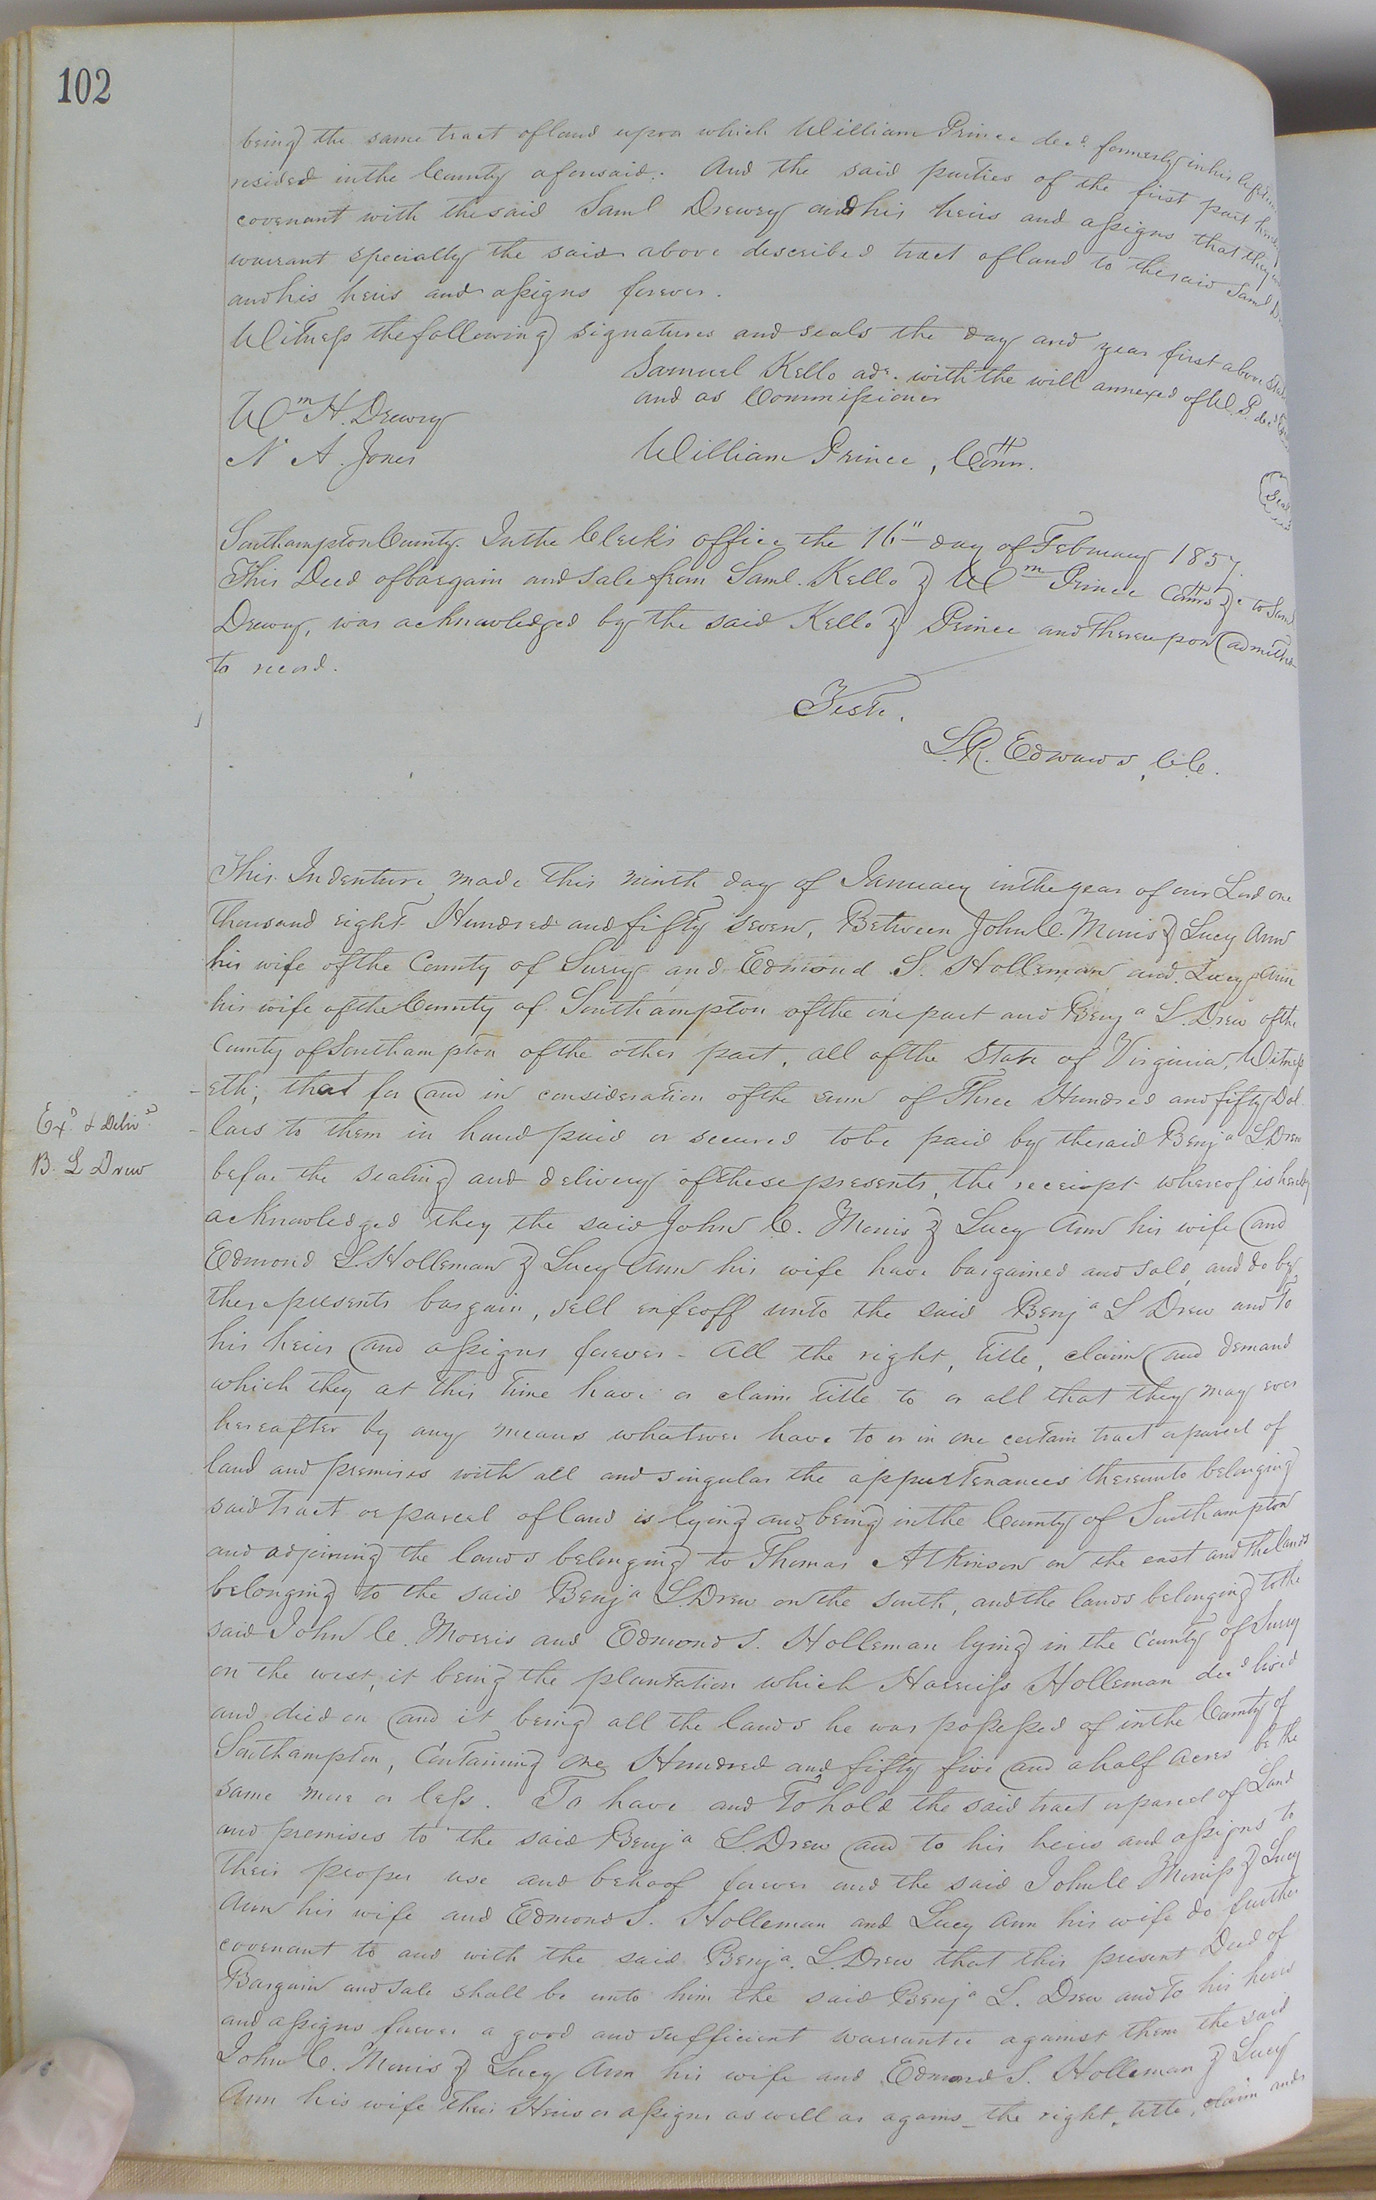 102
being the same tract of land upon which William Prince decd. formerly in his lifetime
resided in the County aforesaid. And the said parties of the first part
covenant with the said Saml Drewry and his heirs and assigns that they
warrant specially the said above described tract of land to the said Saml
and his heirs and assigns forever.
Witness the following signatures and seals the day and year first above
Samuel Kello adr. with the will annexed of W. P. decd
and as Commissioner
Wm H. Drewry
N A. Jones
William Prince, Comr.
Seal
Southampton County. In the Clerk's office the 16" day of February 1857.
This Deed of bargain and sale from Saml. Kello & Wm Prince Comrs &c to Saml
Drewry, was acknowledged by the said Kello & Prince and thereupon admitted
to record.
Teste.
L.R. Edwards, C.C.
This Indenture made this ninth day of January in the year of our Lord one
thousand eight Hundred and fifty seven, Between John C. Morris & Lucy Ann
his wife of the County of Surry and Edmond S. Holleman and Lucy Ann
his wife of the County of Southampton of the one part and Benja L. Drew of the
County of Southampton of the other part, all of the State of Virginia, Witness
-eth; that for and in consideration of the sum of Three Hundred and fifty Dol
-lars to them in hand paid or secured to be paid by the said Benja L Drew
Exd & Delivd
B. L Drew
before the sealing and delivery of these presents, the receipt whereof is hereby
acknowledged they the said John C. Morris & Lucy Ann his wife and
Edmond S. Holleman & Lucy Ann his wife have bargained and sold, and do by
these presents bargain, sell enfeoff unto the said Benja L Drew and to
his heirs and assigns forever - All the right, title, claim and demand
which they at this time have or claim title to or all that they may ever
hereafter by any means whatever have to or in one certain tract or parcel of
land and premises with all and singular the appurtenances thereunto belonging
said tract or parcel of land is lying and being in the County of Southampton
and adjoining the lands belonging to Thomas Atkinson on the east and the lands
belonging to the said Benja L. Drew on the south, and the lands belonging to the
said John C. Morris and Edmond S. Holleman lying in the County of Surry
on the west, it being the plantation which Harriss Holleman decd lived
and died on and it being all the lands he was possessed of in the County of
Southampton, Containing One Hundred and fifty five and a half Acres be the
same more or less. To have and to hold the said tract or parcel of Land
and premises to the said Benja L. Drew and to his heirs and assigns to
their proper use and behoof forever and the said John C Morriss & Lucy
Ann his wife and Edmond S. Holleman and Lucy Ann his wife do further
covenant to and with the said Benja. L. Drew that this present Deed of
Bargain and sale shall be unto him the said Benja L. Drew and to his heirs
and assigns forever a good and sufficient warrantee against them the said
John C. Morris & Lucy Ann his wife and Edmond S. Holleman & Lucy
Ann his wife their Heirs or assigns as well as agains the right, title, claim and